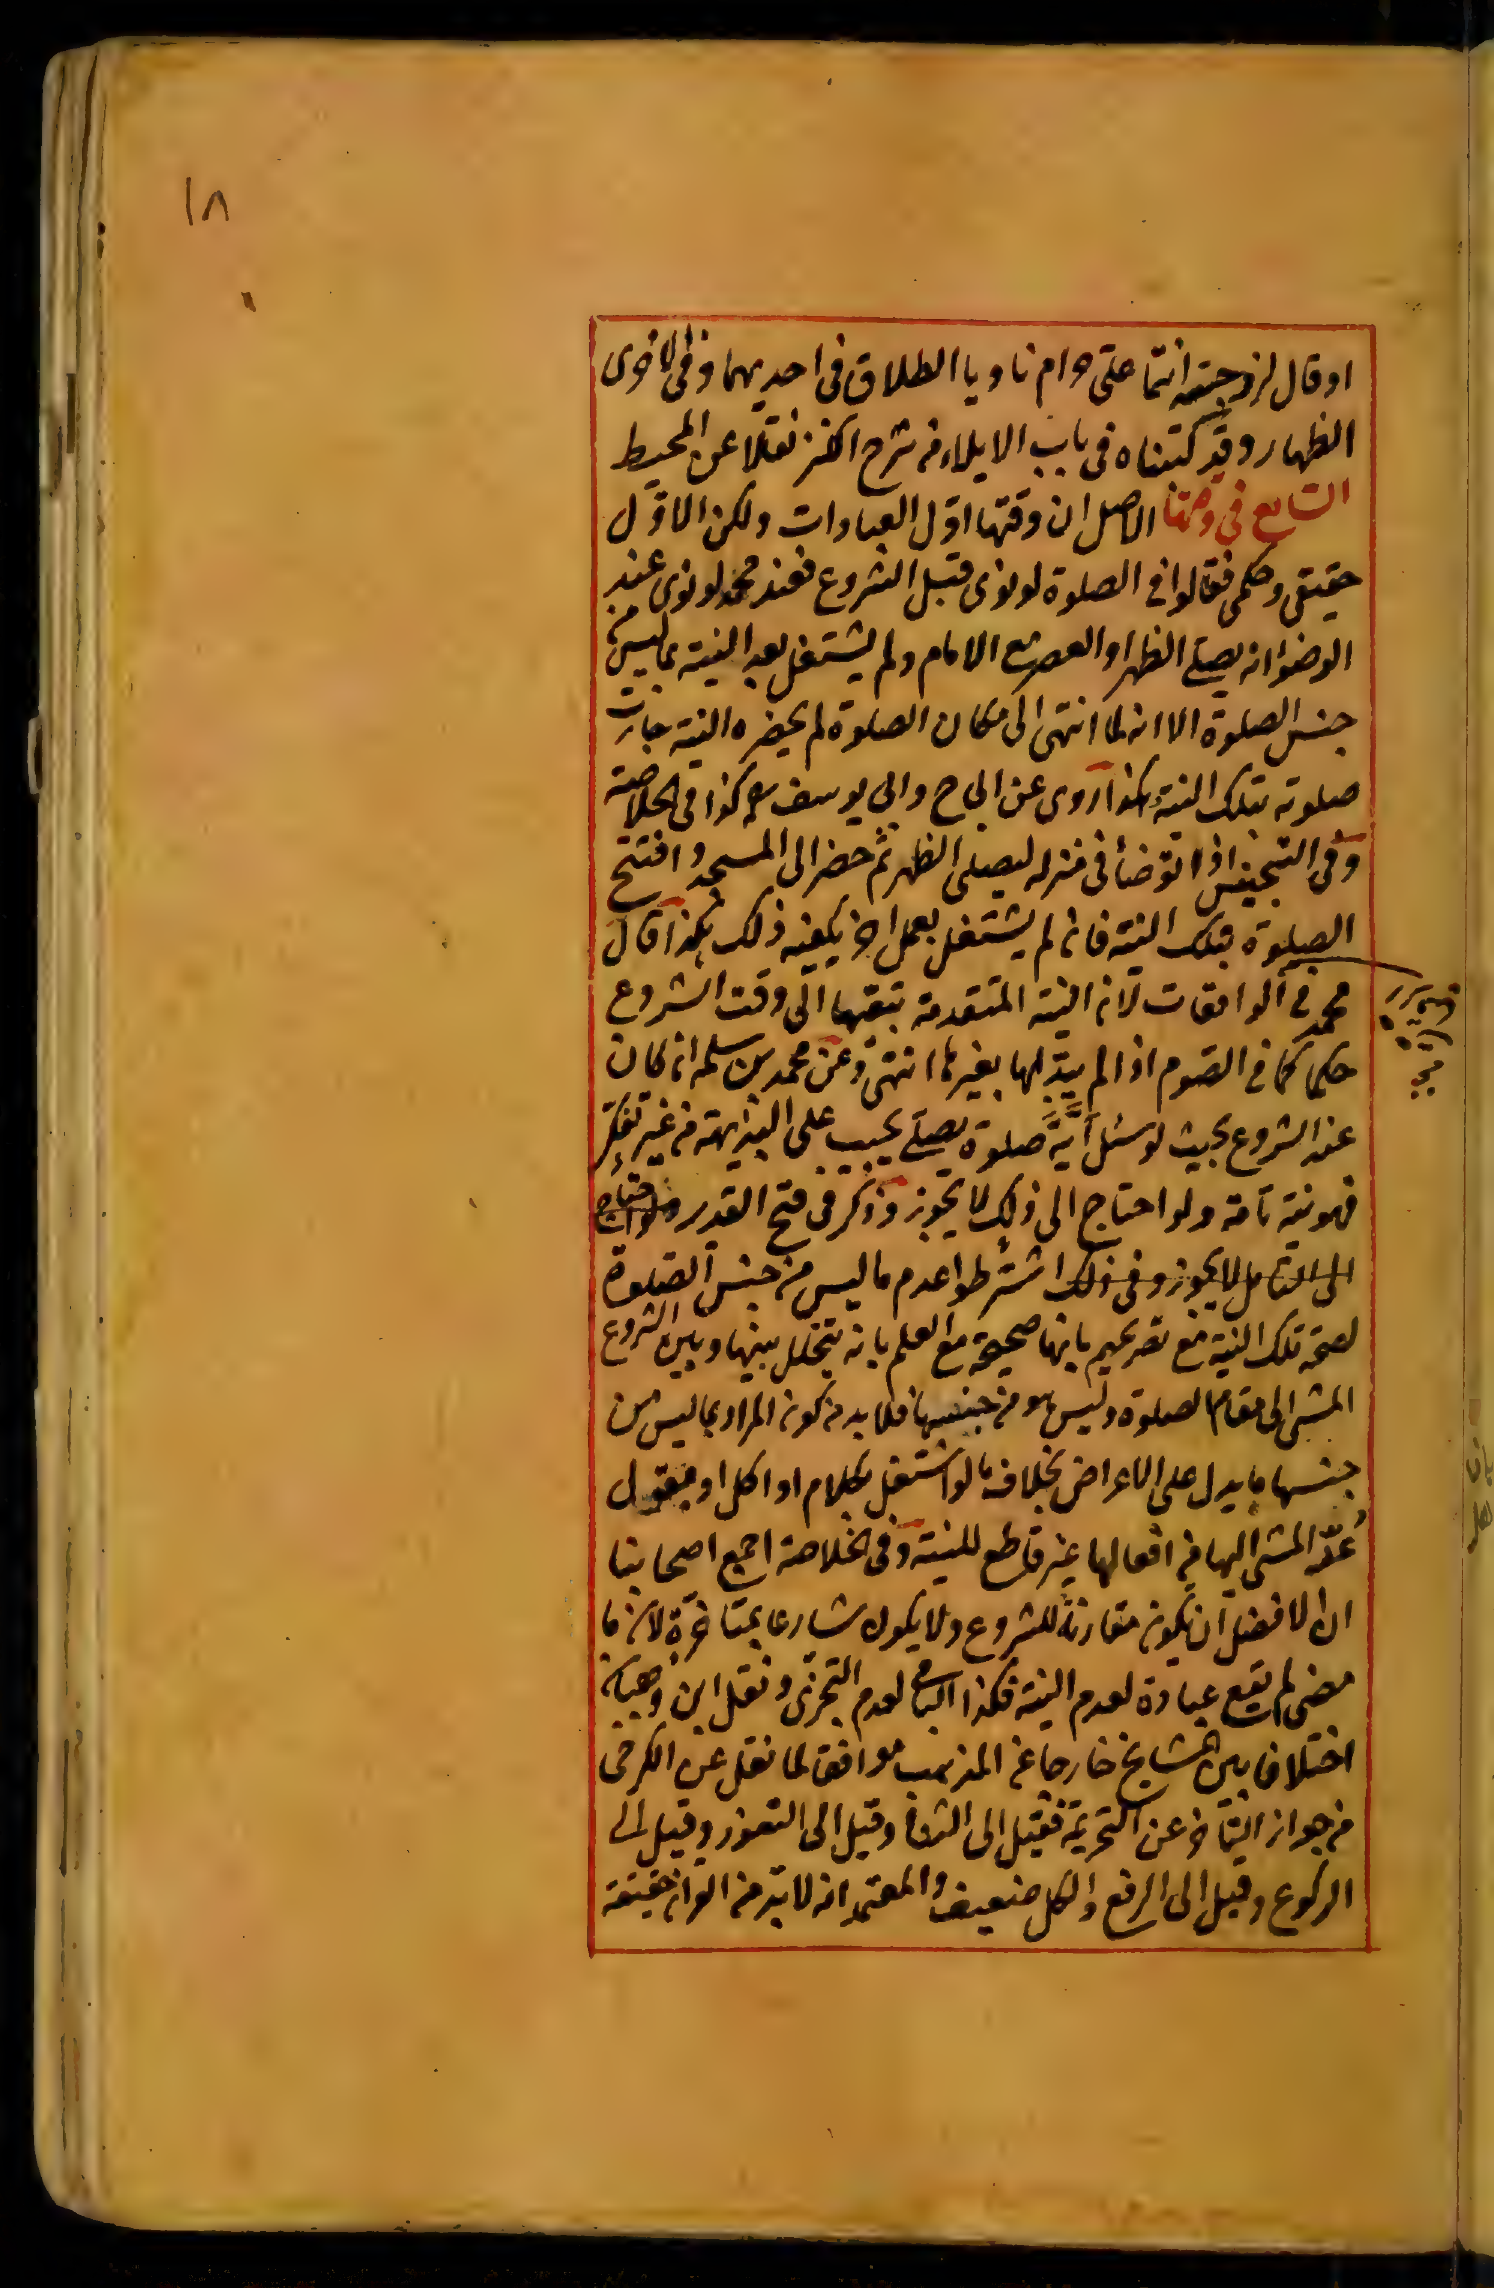 ١٨
او قال لزوجتيه انتما علىّ حرام ناويا الطلاق فى احديهما وفى الاخرى
الظهار وقد كتبناه فى باب الايلاء من شرح الكنز نقلا عن المحيط
السابع فى وقتها الاصل ان وقتها اوّل العبادات ولكن الاوّل
حقيقى وحكمى فقالوا فى الصلوة لو نوى قبل الشروع فعند محمد لو نوى عند
الوضوء انه يصلى الظهر او العصر مع الامام ولم يشتغل بعد النية بما ليس من
جنس الصلوة الا انه لما انتهى الى مكان الصلوة لم يحضره النية جازت
صلوته بتلك النية هكذا روى عن ابى ح وابى يوسف كذا فى الخلاصة
وفى التجنيس اذا توضأ فى منزله ليصلى الظهر ثم حضر الى المسجد وافتتح
الصلوة بتلك النية فان لم يشتغل بعمل اخر يكفيه ذلك هكذا قال
محمد فى الواقعات لان النية المتقدمة تبقيها الى وقت الشروع
حكما كما فى الصوم اذا لم يبدّلها بغيرها انتهى وعن محمد بن سلمه ان كان
عند الشروع بحيث لو سئل أيّة صلوة يصلى يجيب على البداهة من غير تفكّر
فهو نية تامة ولو احتاج الى ذلك لا يجوز وذكر فى فتح القدير ولو احتاج
الى التأمل لا يجوز وفى ذلك اشترطوا عدم ما ليس من جنس الصلوة
لصحة تلك النية مع تصريحهم بانها صحيحة مع العلم بانه يتخلل بينها وبين الشروع
المشى الى مقام الصلوة وليس هو من جنسها فلا بد من كون المراد بما ليس من
جنسها ما يدل على الاعراض بخلاف ما لو اشتغل بكلام او اكل او نقول
عُدّ المشى اليها من افعالها غير قاطع للنية وفى الخلاصة اجمع اصحابنا
ان الافضل ان تكون مقارنةً للشروع ولا يكون شارعا بمتاخرة لان ما
مضى لم يقع عبادة لعدم النية فكذا الباقى لعدم التجزّى ونقل ابن وهبان
اختلافا بين المشايخ خارجا عن المذهب موافقا لما نقل عن الكرخى
من جواز التأخر عن التحريمة فقيل الى الثناء وقيل الى التعوذ وقيل الى
الركوع وقيل الى الرفع والكل ضعيف والمعتمد انه لا بد من القران حقيقة